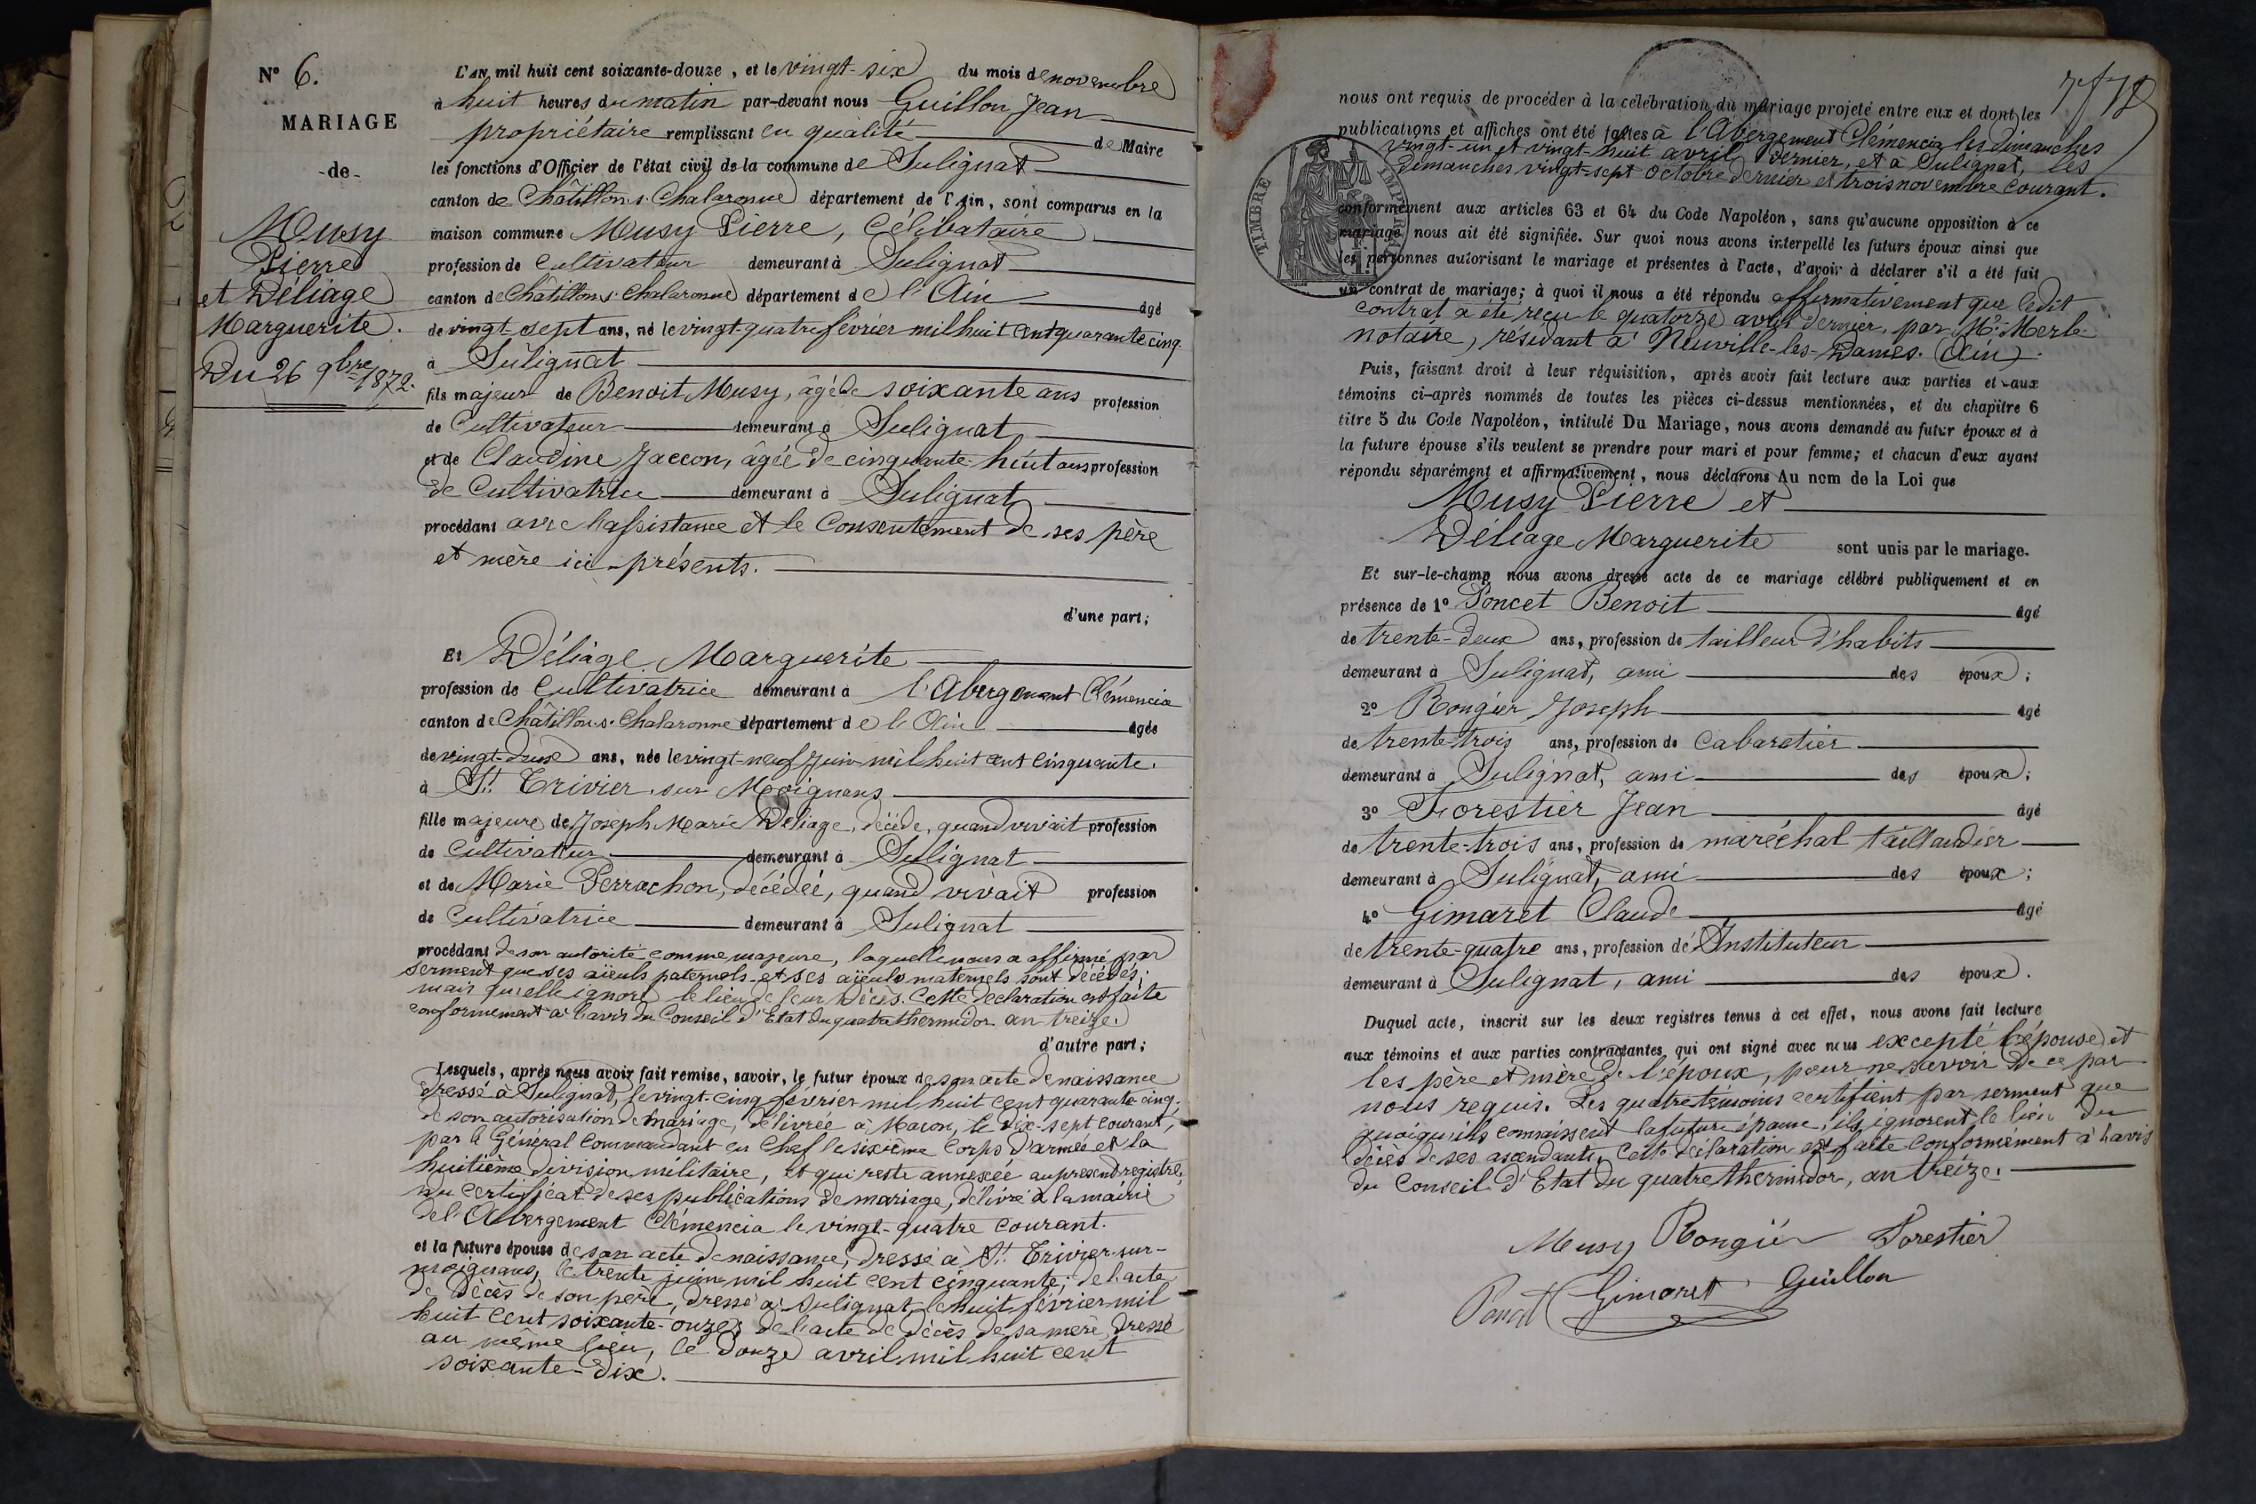 N° 6.
MARIAGE
-de-
Musy
Pierre
et Déliage
Marguerite.
Du 26 9bre 1872.
L'AN mil huit cent soixante-douze, et le vingt-six du mois de novembre
à huit heures du matin par-devant nous Guillon Jean
propriétaire remplissant en qualité de Maire
les fonctions d'Officier de l'état civil de la commune de Sulignat
canton de Châtillon s. Chalaronne département de l'Ain, sont comparus en la
maison commune Musy Pierre, célibataire
profession de Cultivateur demeurant à Sulignat
canton de Châtillon s. Chalaronne département de l'Ain âgé
de vingt-sept ans, né le vingt-quatre février mil huit cent quarante cinq
à Sulignat
fils majeur de Benoit Musy, âgé de soixante ans profession
de Cultivateur demeurant à Sulignat
et de Claudine Jaccon, âgée de cinquante-huit ans profession
de Cultivatrice demeurant à Sulignat
procédant avec l'assistance et le consentement de ses père
et mère ici-présents.
d'une part;
Et Déliage Marguerite
profession de Cultivatrice demeurant à l'Abergement Clémencia
canton de Châtillon-s.-Chalaronne département de l'Ain âgée
de vingt-deux ans, née le vingt-neuf juin mil huit cent cinquante.
à St. Trivier sur Moignans
fille majeure de Joseph Marie Déliage, décédé, quand vivait profession
de Cultivateur demeurant à Sulignat
et de Marie Perrachon, décédée, quand vivait profession
de Cultivatrice demeurant à Sulignat
procédant de son autorité comme majeure, laquelle nous a affirmé par
serment que ses aïeuls paternels et ses aïeuls maternels sont décédés;
mais qu'elle ignore le lieu de leur décès. Cette déclaration est faite
conformément à l'avis du Conseil d'Etat du quatre thermidor an treize.
d'autre part;
Lesquels, après nous avoir fait remise, savoir, le futur époux de son acte de naissance
dressé à Sulignat, le vingt-cinq février mil huit cent quarante cinq;
de son autorisation de mariage, délivrée à Macon, le dix-sept courant,
par le Général Commandant en Chef le sixième Corps d'armée et la
huitième division militaire, et qui reste annexée au présent registre,
du certificat de ses publications de mariage, délivré à la mairie
de l'Abergement Clémencia le vingt-quatre courant.
et la future épouse de son acte de naissance, dressé à St. Trivier-sur-
moignans, le trente juin mil huit cent cinquante; de l'acte
de décès de son père, dressé à Sulignat, le huit février mil
huit cent soixante-onze; de l'acte de décès de sa mère dressé
au même lieu, le douze avril mil huit cent
soixante-dix.
nous ont requis de procéder à la célébration du mariage projeté entre eux et dont les
publications et affiches ont été faites à l'Abergement Clémencia les dimanches
vingt-un et vingt-huit avril dernier, et à Sulignat, les
dimanches vingt-sept octobre dernier et trois novembre courant.
TIMBRE IMPÉRIAL
conformément aux articles 63 et 64 du Code Napoléon, sans qu'aucune opposition à ce
mariage nous ait été signifiée. Sur quoi nous avons interpellé les futurs époux ainsi que
les personnes autorisant le mariage et présentes à l'acte, d'avoir à déclarer s'il a été fait
un contrat de mariage; à quoi il nous a été répondu affirmativement que ledit
contrat a été reçu le quatorze avril dernier, par Me. Merle
notaire, résidant à Neuville-les-Dames. (Ain).
Puis, faisant droit à leur réquisition, après avoir fait lecture aux parties et aux
témoins ci-après nommés de toutes les pièces ci-dessus mentionnées, et du chapitre 6
titre 5 du Code Napoléon, intitulé Du Mariage, nous avons demandé au futur époux et à
la future épouse s'ils veulent se prendre pour mari et pour femme; et chacun d'eux ayant
répondu séparément et affirmativement, nous déclarons Au nom de la Loi que
Musy Pierre et
Déliage Marguerite sont unis par le mariage.
Et sur-le-champ nous avons dressé acte de ce mariage célébré publiquement et en
présence de 1° Poncet Benoit âgé
de trente-deux ans, profession de tailleur d'habits
demeurant à Sulignat, ami des époux;
2° Rongier Joseph âgé
de trente-trois ans, profession de Cabaretier
demeurant à Sulignat, ami des époux;
3° Forestier Jean âgé
de trente-trois ans, profession de maréchal taillandier
demeurant à Sulignat, ami des époux;
4° Gimaret Claude âgé
de trente-quatre ans, profession d'Instituteur
demeurant à Sulignat, ami des époux.
Duquel acte, inscrit sur les deux registres tenus à cet effet, nous avons fait lecture
aux témoins et aux parties contractantes qui ont signé avec nous excepté l'épouse et
les père et mère de l'époux, pour ne savoir de ce par
nous requis. Les quatre témoins certifient par serment que
quoiqu'ils connaissent la future épouse, ils ignorent le lieu du
décès de ses ascendants. Cette déclaration est faite conformément à l'avis
du Conseil d'Etat du quatre thermidor, an treize.
Musy Rongier Forestier
Poncet Gimaret Guillon